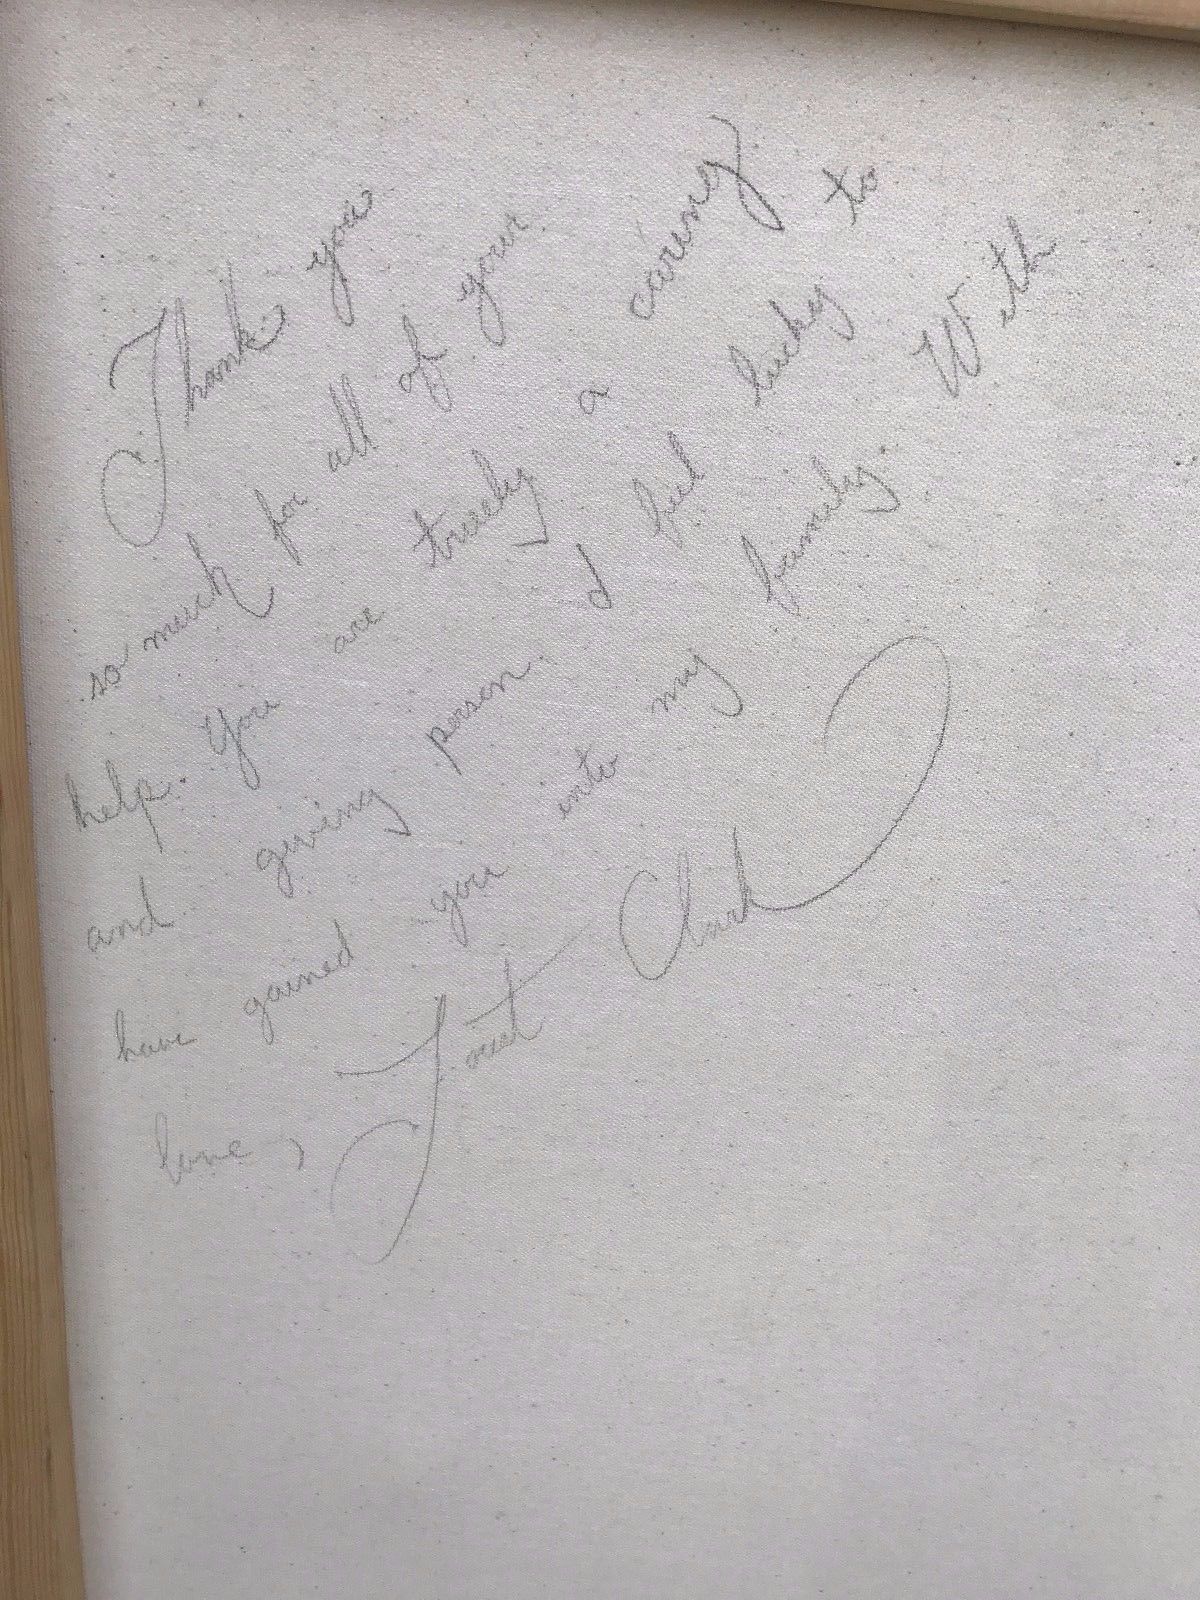 Thank you
so much for all of your
help. You are truely a caring
and giving person. I feel lucky to
have gained you into my family. With
love, Clark